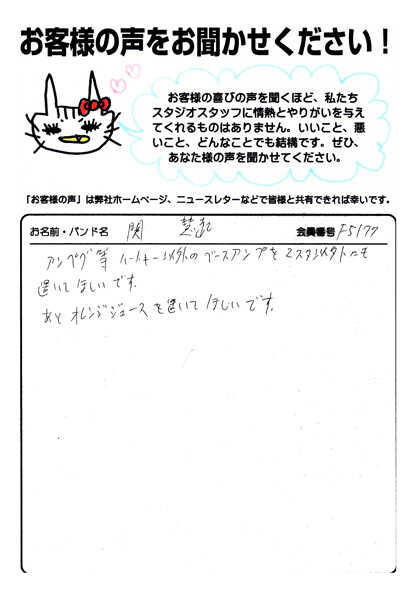 お客様の声をお聞かせください！
お客様の喜びの声を聞くほど、私たち
スタジオスタッフに情熱とやりがいを与え
てくれるものはありません。いいこと、悪
いこと、どんなことでも結構です。ぜひ、
あなた様の声を聞かせてください。
「お客様の声」は弊社ホームページ、ニュースレターなどで皆様と共有できれば幸いです。
お名前・バンド名 関 会員番号 F5177
アンペグ等 ハートキー以外のベースアンプを 2スタ以外にも
置いてほしいです。
あと オレンジジュースを置いて ほしいです。